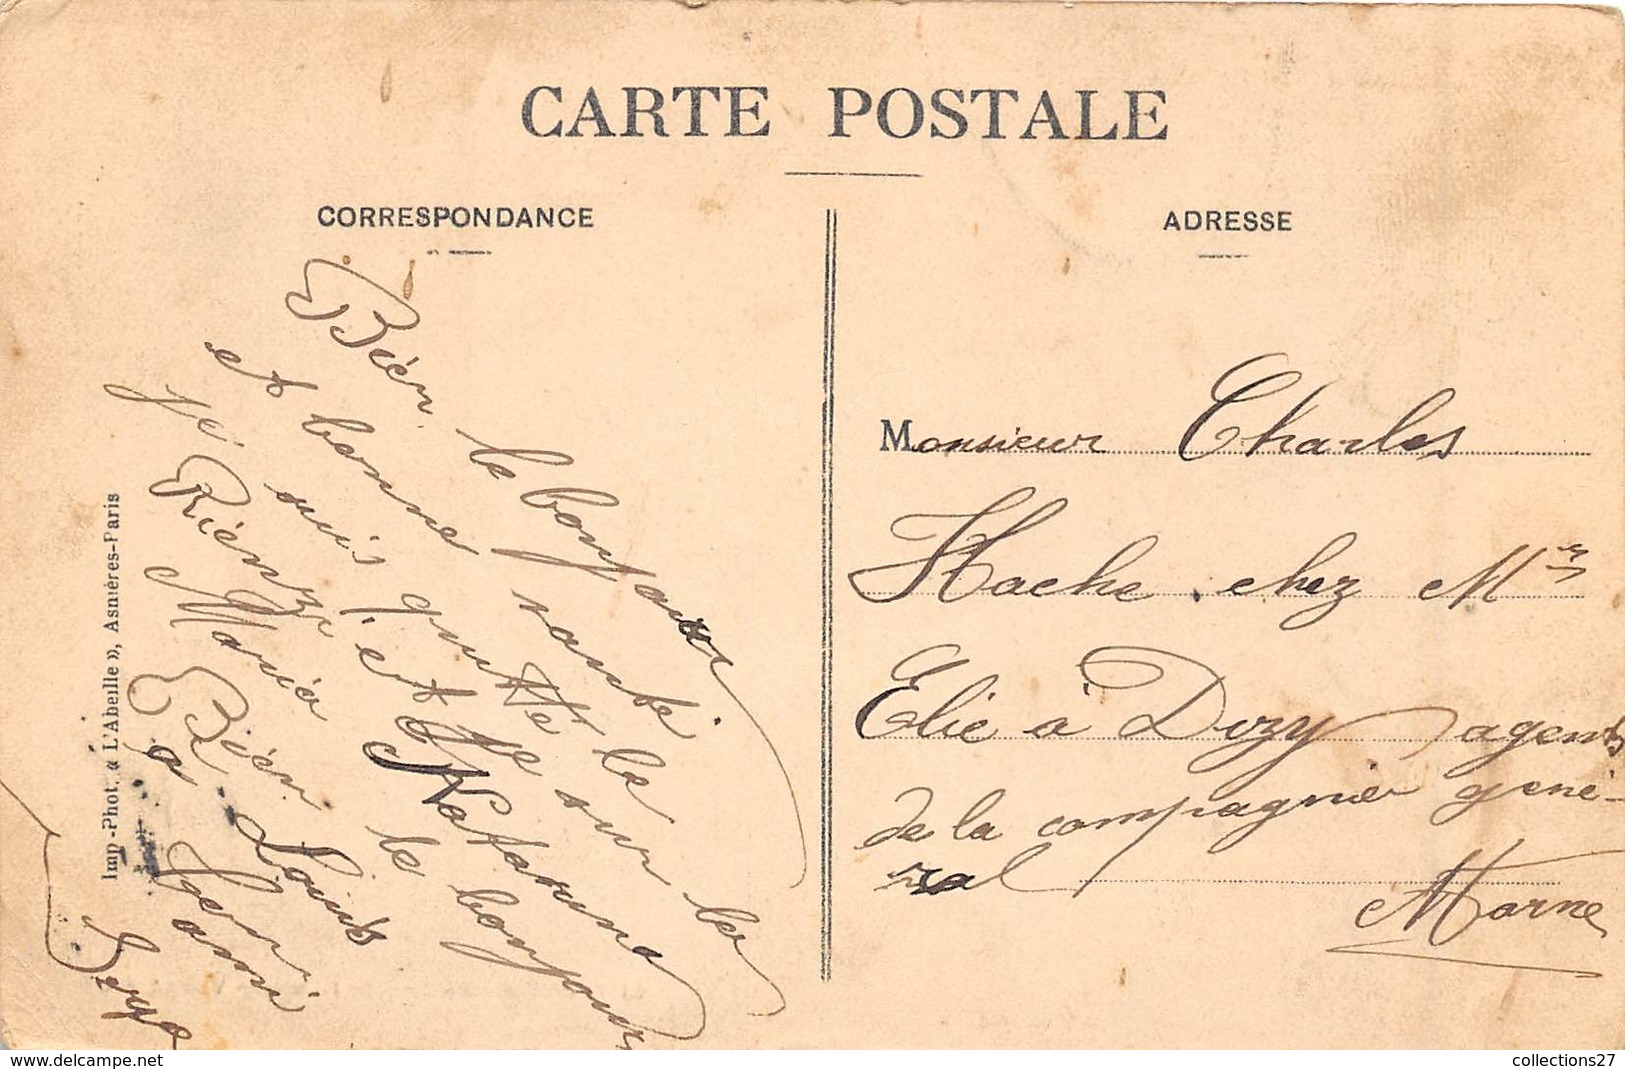 CARTE POSTALE
CORRESPONDANCE
Bien le bonjour
et bonne santé
je suis quitté le
Rienzi et je sur le
Maria
Bien le bonjour
a Louis
ami
Serge
Imp.-Phot. « L'Abeille », Asnières-Paris
ADRESSE
Monsieur Charles
Hache chez Mr
Elie à Dizy agent
de la compagnie géné-
ral
Marne
www.delcampe.net
collections27